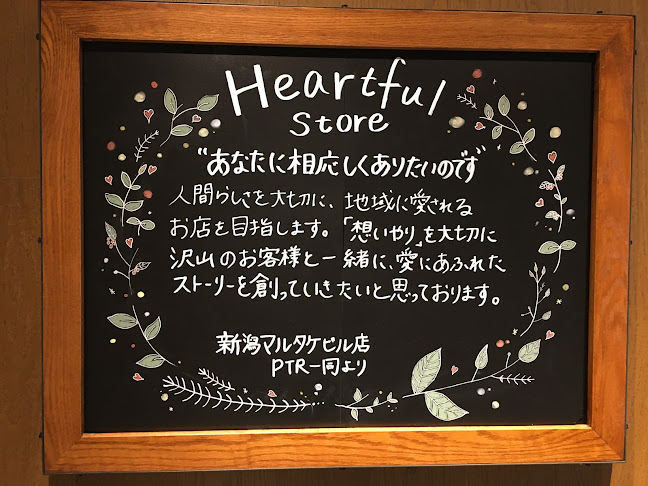 Heartful
Store
"あなたに相応しくありたいのです"
人間らしさを大切に、地域に愛される
お店を目指します。「想いやり」を大切に
沢山のお客様と一緒に、愛にあふれた
ストーリーを創っていきたいと思っております。
新潟マルタケビル店
PTR一同より